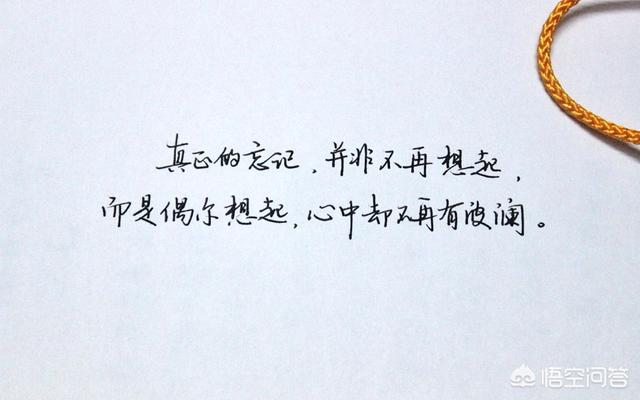 真正的忘记，并非不再想起，
而是偶尔想起，心中却不再有波澜。
悟空问答